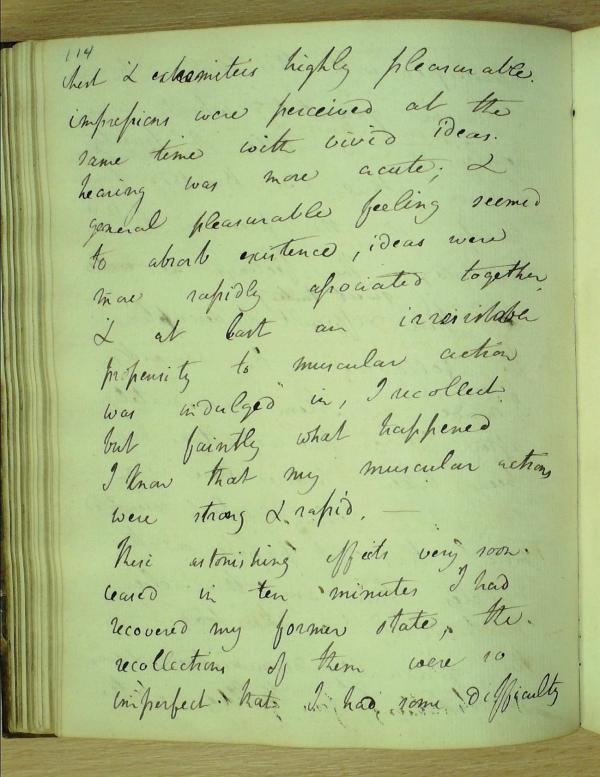 114
chest & extremities highly pleasurable.
impressions were perceived at the
same time with vivid ideas.
hearing was more acute; &
general pleasurable feeling seemed
to absorb existence, ideas were
more rapidly associated together,
& at last an irresistable
propensity to muscular action
was indulged in, I recollect
but faintly what happened
I know that my muscular actions
were strong & rapid. —
These astonishing effects very soon
ceased in ten minutes I had
recovered my former state, the
recollections of them were so
imperfect that I had some difficulty